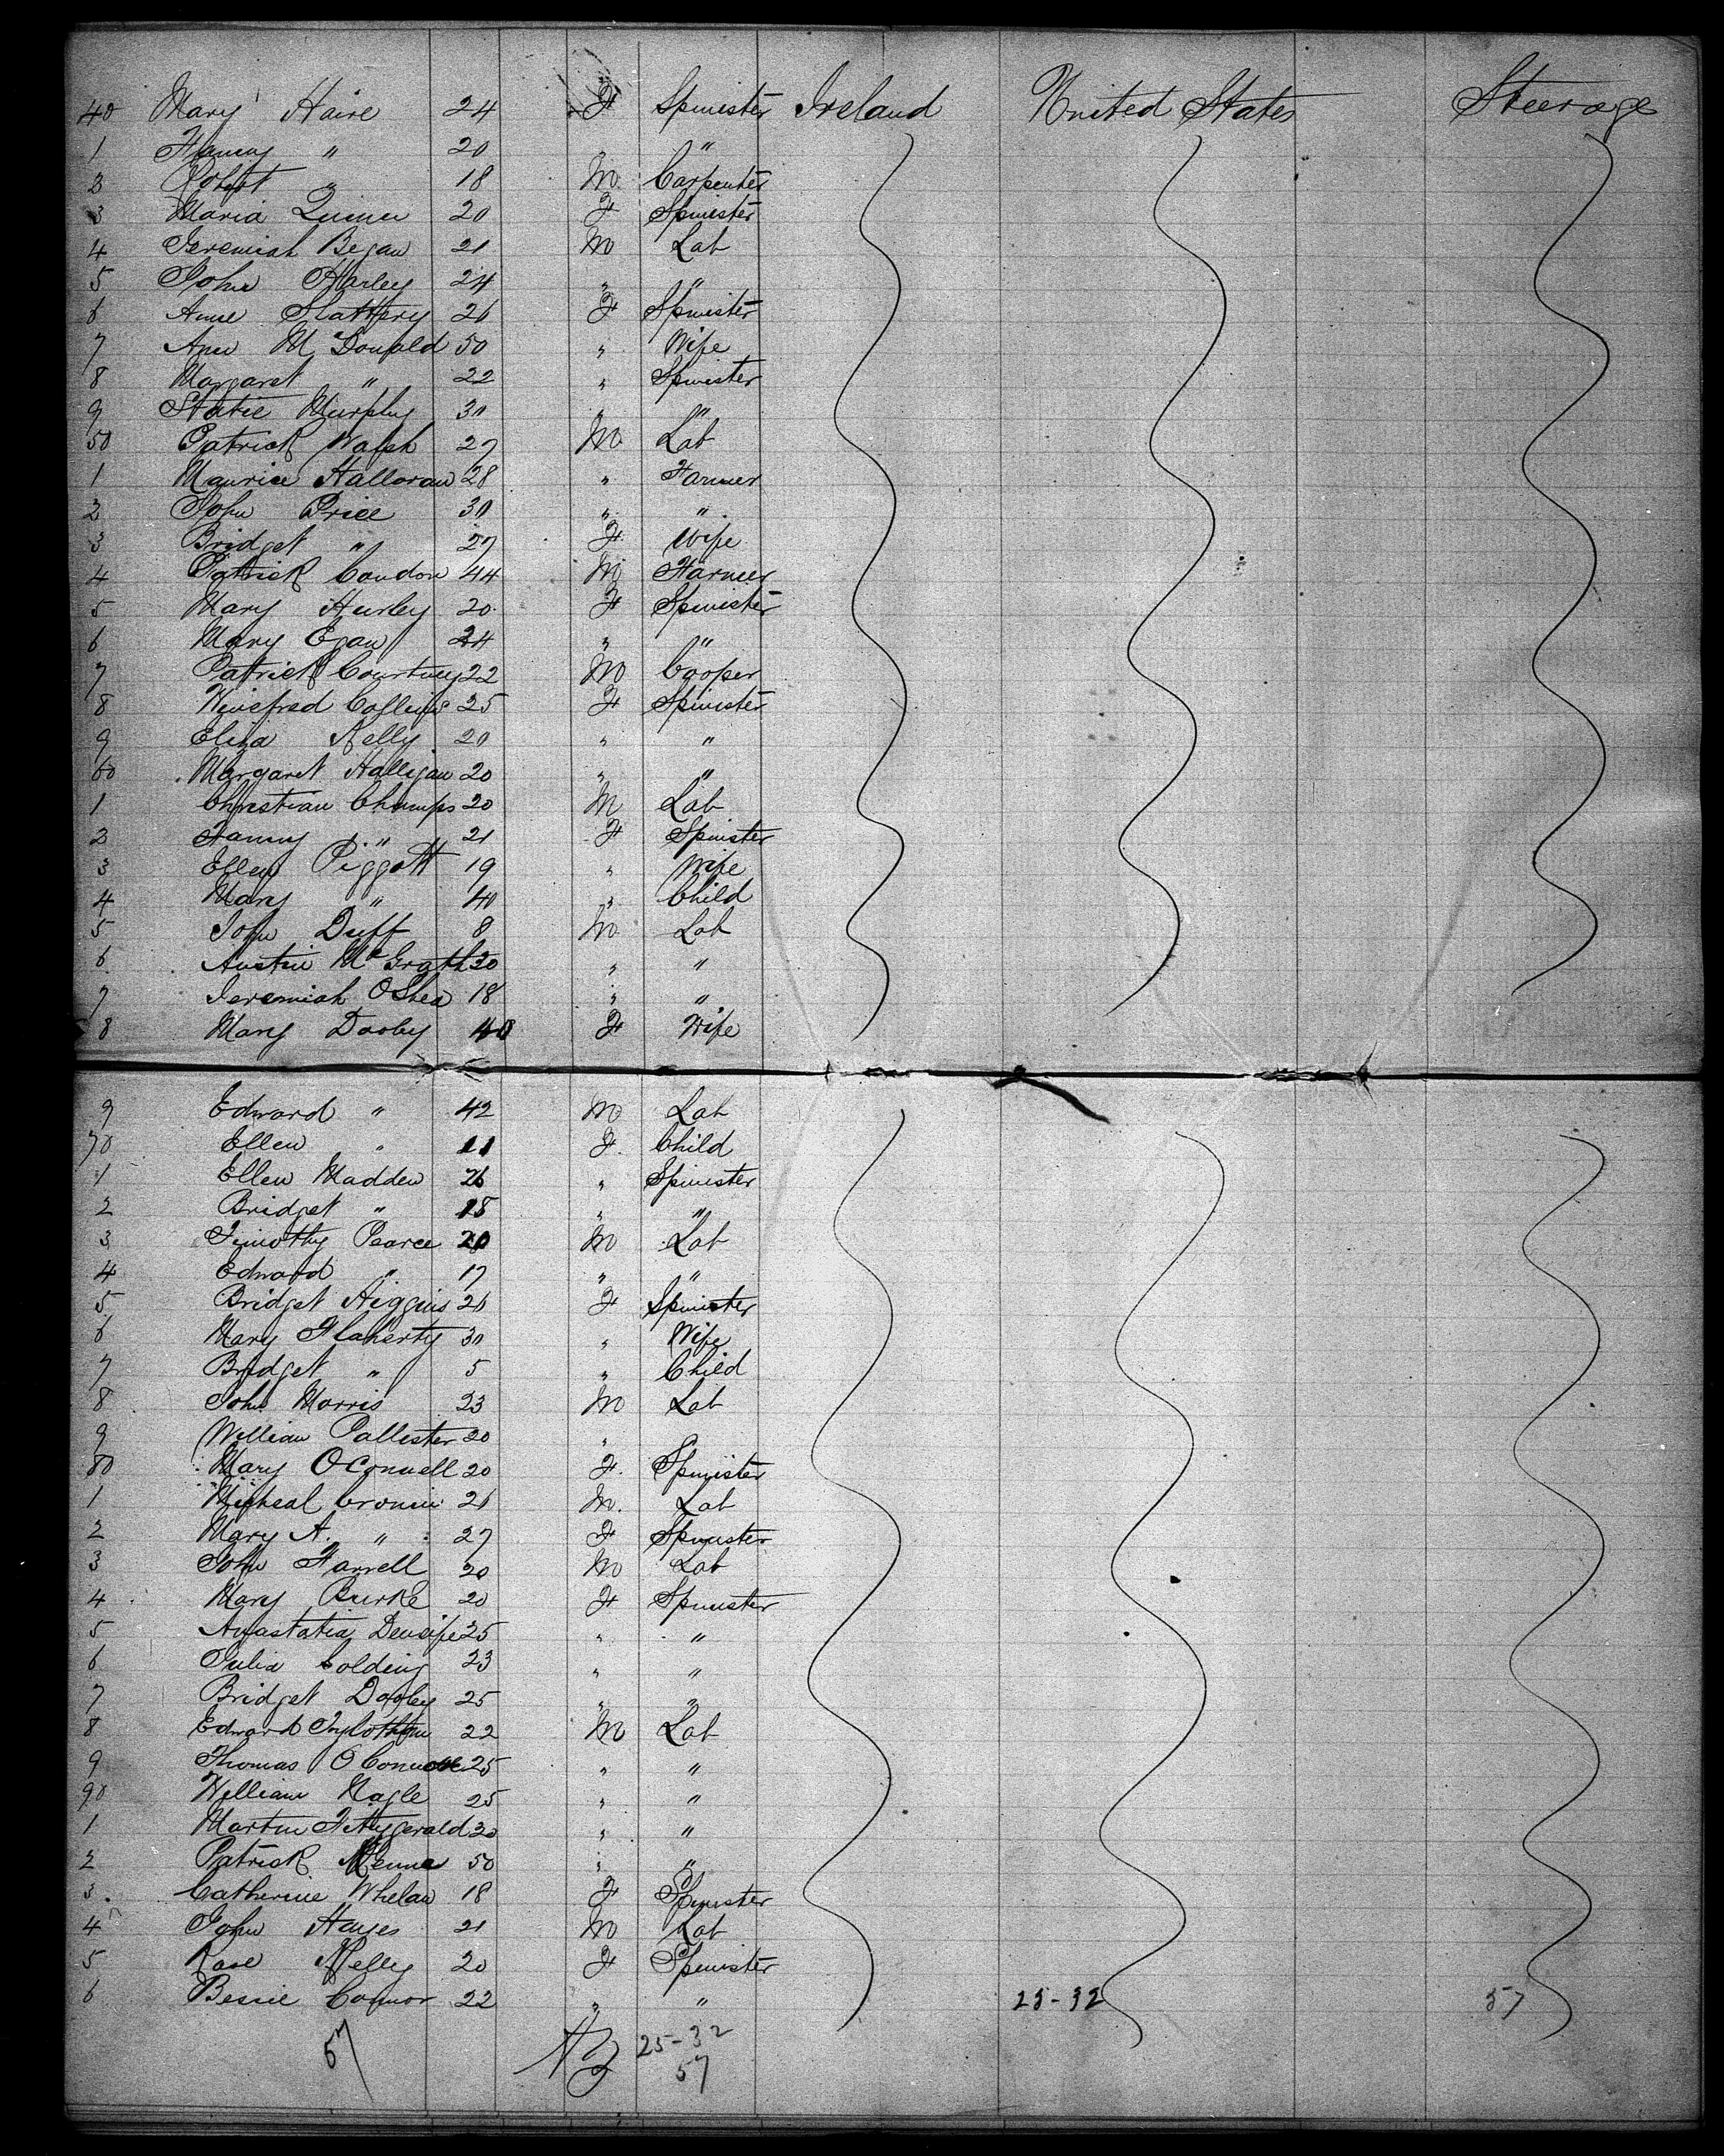 40 Mary Haire 24 F Spinster Ireland United States Steerage
1 Fanny " 20 " "
2 Robert " 18 M Carpenter
3 Maria Quinn 20 F Spinster
4 Jeremiah Began 21 M Lab
5 John Harley 24 " "
6 Anne Slattery 26 F Spinster
7 Ann McDonald 50 " Wife
8 Margaret " 22 " Spinster
9 Statie Murphy 30 " "
50 Patrick Walsh 27 M Lab
1 Maurice Halloran 28 " Farmer
2 John Price 30 " "
3 Bridget " 27 F Wife
4 Patrick Condon 44 M Farmer
5 Mary Hurley 20 F Spinster
6 Mary Egan 24 " "
7 Patrick Courtney 22 M Cooper
8 Winefred Collins 25 F Spinster
9 Eliza Kelly 20 " "
60 Margaret Halligan 20 " "
1 Christian Champs 20 M Lab
2 Fanny " 21 F Spinster
3 Ellen Piggott 19 " Wife
4 Mary " 40 " Child
5 John Duff 8 M Lab
6 Austin McGrath 20 " "
7 Jeremiah OShea 18 " "
8 Mary Dooley 40 F Wife
9 Edward " 42 M Lab
70 Ellen " 11 F. Child
1 Ellen Madden 26 " Spinster
2 Bridget " 18 " "
3 Timothy Pearce 20 M Lab
4 Edward " 17 " "
5 Bridget Higgins 26 F Spinster
6 Mary Flaherty 30 " Wife
7 Bridget " 5 " Child
8 John Morris 23 M Lab
9 William Pallister 20 " "
80 Mary OConnell 20 F. Spinster
1 Micheal Cronin 26 M. Lab
2 Mary A. " 27 F Spinster
3 John Farrell 20 M Lab
4 Mary Burke 20 F Spinster
5 Anastatia 25 " "
6 Julia Colding 23 " "
7 Bridget Dooley 25 " "
8 Edward 22 M Lab
9 Thomas 25 " "
90 William Nagle 25 " "
1 Martin Fittzgerald 30 " "
2 Patrick Kenna 50 " "
3 Catherine Whelan 18 F Spinster
4 John Hayes 21 M Lab
5 Rose Kelly 20 F Spinster
6 Bessie Connor 22 " " 25-32 57
57 25-32
57